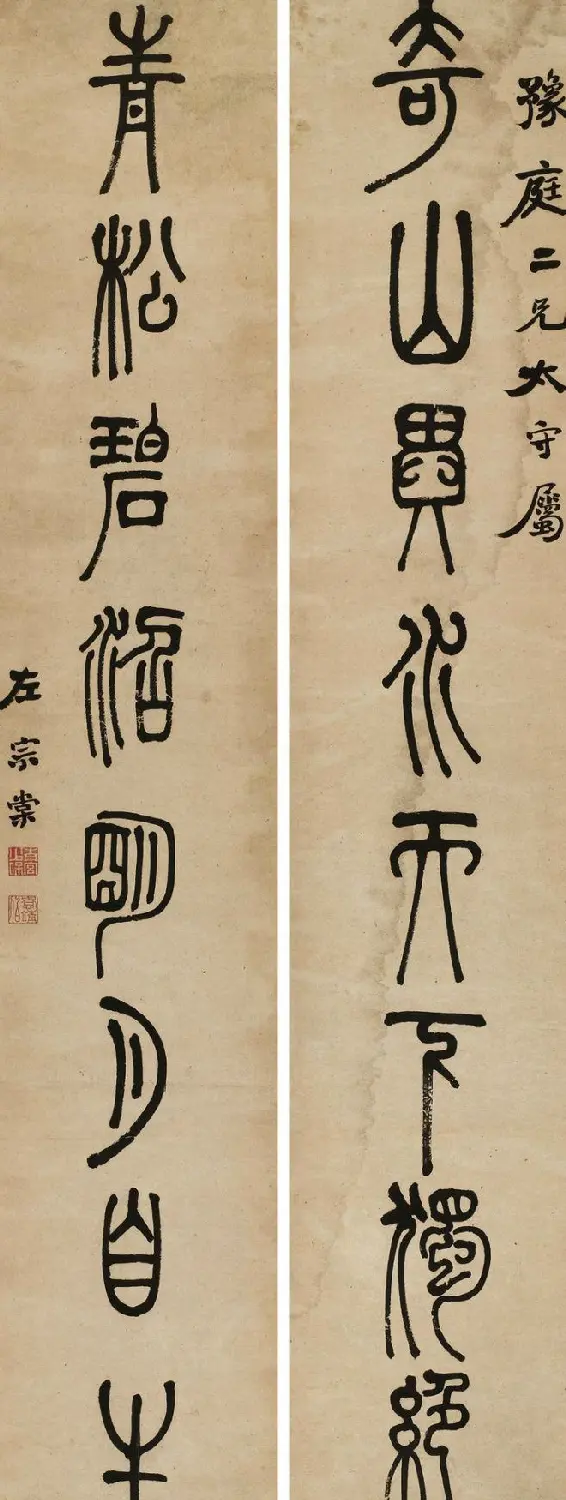 豫庭二兄太守屬
奇山異水天下獨絕
青松碧沼明月自生
左宗棠